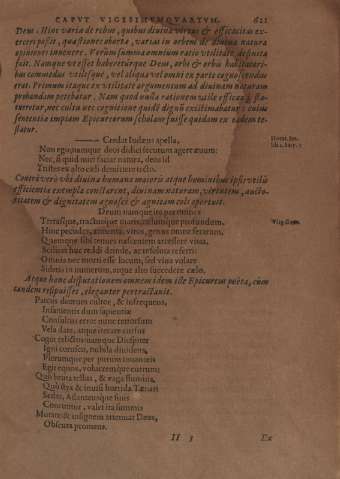 CAPUT VIGESIMUMQUARTUM. 621
Deus. Hinc varia de rebus, quibus divina virtus & efficacitas ex-
erceri possit, quæstiones aborta, variæ in orbem de divina natura
opiniones invenere. Verum summa omnium ratio utilitate definita
fuit. Namque ut esset haberetúrque Deus, orbi & orbis habitatori-
bus commodus utilísque, vel aliqua vel omni ex parte cognoscendus
erat. Primum itaque ex utilitate argumentum ad divinam naturam
probandam petebatur. Nam quod nulla ratione utile efficax
nec cultu nec cognitione quadã dignũ existimabatur: cuius
sententiæ impiam Epicureorum scholam fuisse quidam ex eadem te-
statur.
Credat Iudæus apella,
Horat. Ser.
Non ego: namque deos didici securum agere ævum:
Nec, si quid miri faciat natura, deos id
Tristes ex alto cæli demittere tecto.
Controversò ubi divina humana maioris atque hominibus ipsis utilis
efficientia exempla constarent, divinam naturam, virtutem, aucto-
ritatem & dignitatem agnosci & agnitam coli oportuit.
Deum namque ire per omnes
Terrasque, tractusque maris, cælumque profundum.
Virg. Geor.
Hinc pecudes, armenta, viros, genus omne ferarum,
Quemque sibi tenues nascentem arcessere vitas.
Scilicet huc reddi deinde, ac resoluta referri
Omnia: nec morti esse locum, sed viva volare
Sideris in numerum, atque alto succedere cælo.
Atque hanc disputationem omnem idem ille Epicureus poëta, cùm
tandem resipuisset, eleganter pertractavit.
Parcus deorum cultor, & infrequens,
Insanientis dum sapientiæ
Consultus erro: nunc retrorsum
Vela dare, atque iterare cursus
Cogor relictos: namque Diespiter
Igni corusco, nubila dividens,
Plerumque per purum tonantes
Egit equos, volucremque currum:
Quò bruta tellus, & vaga flumina,
Quò Styx & invisi horrida Tænari
Sedes, Atlanteusque finis
Concutitur. valet ima summis
Mutare, & insignem attenuat Deus,
Obscura promens.
II 3 Ex